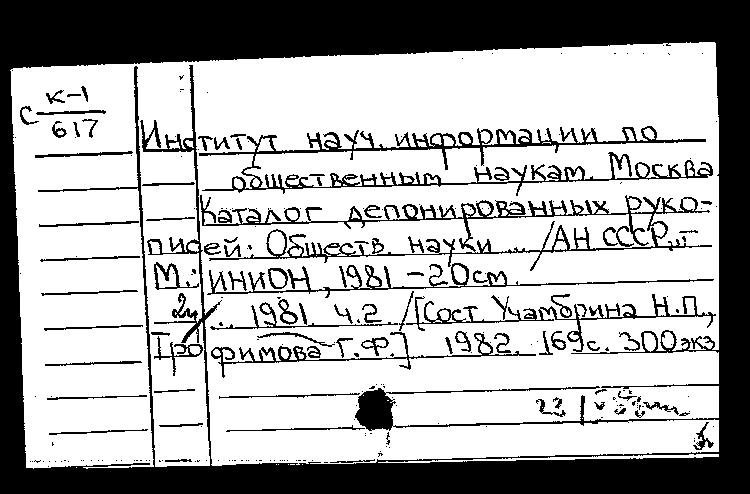 С К-1
617
Институт науч. информации по
общественным наукам. Москва
Каталог депонированных руко-
писей: Обществ. науки ... /АН СССР, ...
М.: ИНИОН, 1981 - 20см.
... 1981. Ч.2 /[Сост. Учамбрина Н.П.,
Трофимова Г.Ф.] 1982. 169с. 300экз
23